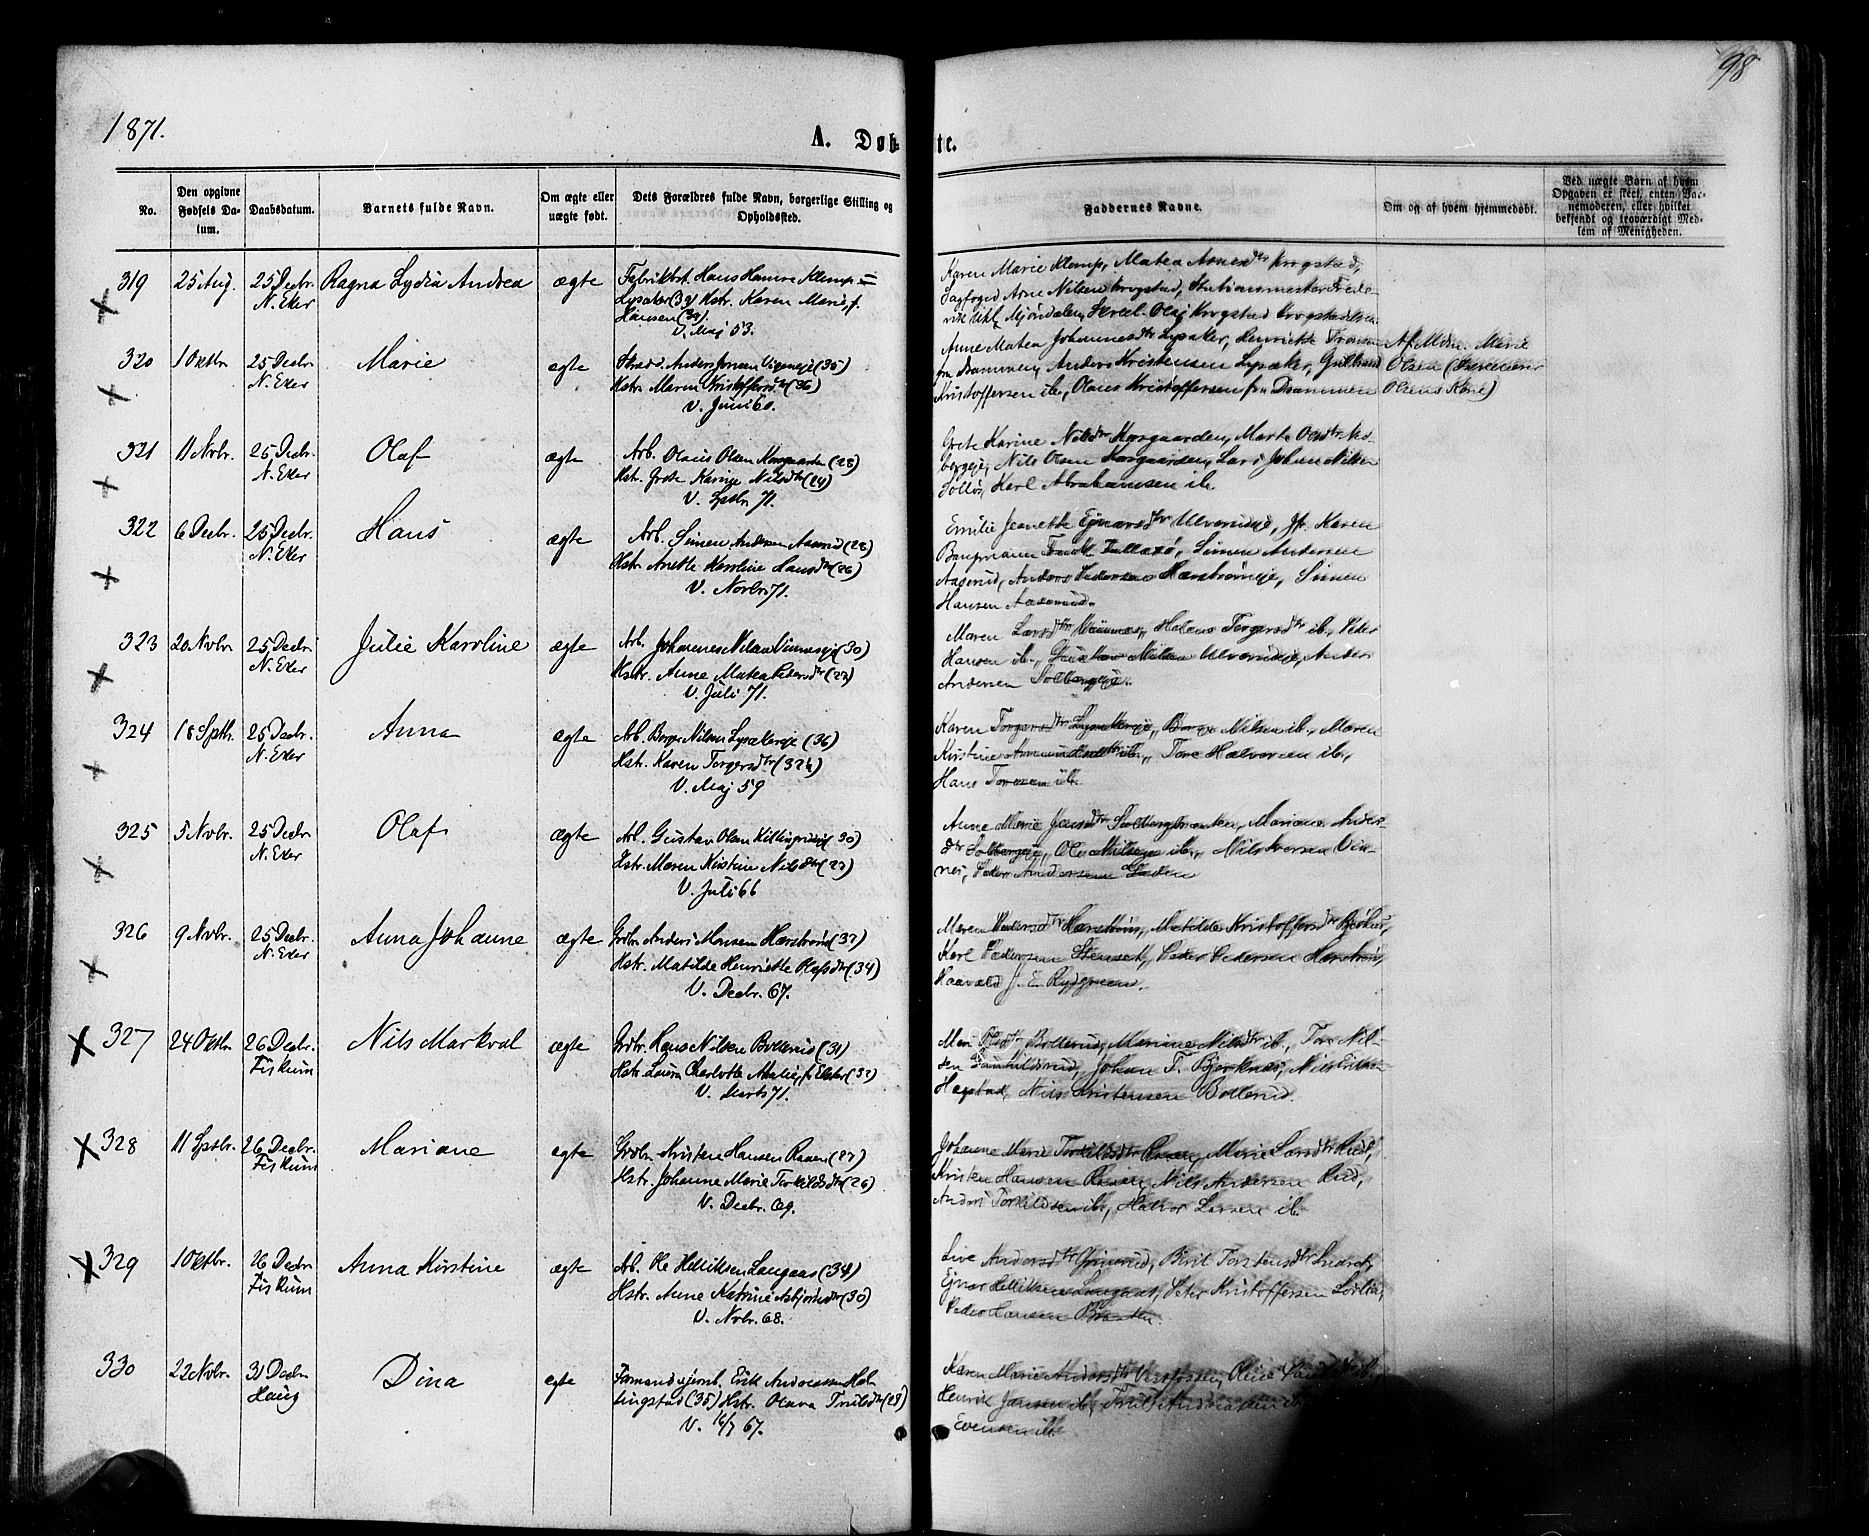 1871.
98
A. Døb-
te.
No.
Den opgivne Fødsels Da-
tum.
Daabsdatum.
Barnets fulde Navn.
Om ægte eller
uægte født.
Dets Forældres fulde Navn, borgerlige Stilling og
Opholdssted.
Faddernes Navne.
Om og af hvem hjemmedøbt.
Ved uægte Barn af hvem
Opgaven er skeet, enten Bar-
nemoderen, eller hvilket
bekjendt og troværdigt Med-
lem af Menigheden.
319 25 Aug. 25 Decbr. N. Eker Ragna Lydia Andrea ægte
Lysaker (39) Hstr. Karen Marie f.
Hansen (39).
V. Maj 53.
Karen Marie Klemp, Matea Arnesdtr Krogstad,
Sagfoged Arne Nilsen Krogstad, Stationsmester Frede-
rik Uhl, Mjøndalen, Olaj Krogstad
320 1 Oktbr. 25 Decbr. N. Eker Marie ægte
Hstr. Maren Kristoffersdtr (36)
V. Juni 60.
Anne Matea Johannesdtr Lysaker, Henriette
fra Drammen, Anders Kristensen Lysaker, Gulbrand
Kristoffersen ib., Olaus Kristoffersen fra Drammen
Af Mdm. Marie
Olsen
Olsens Kone)
321 11 Nvbr. 25 Decbr. N. Eker Olaf ægte
Arb. Olaus Olsen Korsgaarden (28)
Hst. Grete Karine Nilsdtr (24)
V. Sptbr. 71.
Grete Karine Nilsdtr Korsgaarden, Marte Olsdtr
Nils Olsen Korsgaarden, Lars Johan Nilsen
Karl Abrahamsen ib.
322 6 Decbr. 25 Decbr. N. Eker Hans ægte
Arb. Simen Andersen Aaserud (28)
Hstr. Anette Karoline Hansdtr (26)
V. Novbr. 71.
Emilie Jeanette Ejnarsdtr Ulverudeje, Jfr. Karen
Simen Andersen
Aaserud, Anders Pedersen Hærstrømeje, Simen
Hansen Aaserud.
323 20 Nvbr. 25 Decbr. N. Eker Julie Karoline ægte
Arb. Johannes Nilsen Vinnæseje (30)
Hstr. Anne Matea Pedersdtr (23)
V. Juli 71.
Maren Larsdtr Vinnæs, Helene Torgersdtr ib., Peder
Hansen ib., Gustav Nilsen Ulverudeje, Anders
Andersen Solbergeje.
324 18 Sptbr. 25 Decbr. N. Eker Anna ægte
Arb. Borge Nilsen Lysakereje (36)
Hstr. Karen Torgersdtr (32½)
V. Maj 59
Karen Torgersdtr Lysakereje, Borge Nilsen ib., Maren
Kirstine Amundsdtr ib., Tore Halvorsen ib.,
Hans Toresen ib.
325 5 Nvbr. 25 Decbr. N. Eker Olaf ægte
Arb. Gustav Olsen Killingrudeje (30)
Hstr. Maren Kirstine Nilsdtr (23)
V. Juli 66
Anne Marie Jensdtr Solbergbraaten, Mariane Anders-
dtr Solbergeje, Ole Nilsen ib., Nils Iversen Vin-
nes, Peder Andersen
326 9 Nvbr. 25 Decbr. N. Eker Anna Johanne ægte
Grdbr. Anders Monsen Hærstrøm (37)
Hstr. Matilde Henriette Olafsdtr (34)
V. Decbr. 67.
Maren Pedersdtr Hærstrøm, Matilde Kristoffersdtr
Karl Pedersen Stenset, Peder Pedersen Hærstrøm,
Haavald J. E. Rydgreen.
327 24 Oktbr. 26 Decbr. Fiskum Nils Markval ægte
Grdbr. Hans Nilsen Bollerud (31)
Hstr. Laura Charlotte Amalie, f. Eker (32)
V. Marts 71.
Bollerud, Mariane Nilsdtr ib., Tore Nil-
sen Gunhildsrud, Johan T. Bjerknes, Nils Eriksen
Hagstad, Nils Kristensen Bollerud.
328 11 Sptbr. 26 Decbr. Fiskum Mariane ægte
Grdbr. Kristen Hansen Raaen (27)
Hstr. Johanne Marie Torkildsdtr (26)
V. Decbr. 69.
Johanne Marie Torkildsdtr Raaen, Marie Larsdtr Rud,
Kristen Hansen Raaen, Nils Andersen Rud,
Anders Torkildsen ib., Halvor Larsen ib.
329 1 Oktbr. 26 Decbr. Fiskum Anna Kirstine ægte
Arb. Ole Helliksen Langaas (34)
Hstr. Anne Katrine Asbjørnsdtr (30)
V. Nvbr. 68.
Live Andersdtr Birit Torstensdtr
Ejnar Helliksen Langaas, Peter Kristoffersen
Peder Hansen Braaten.
330 22 Nvbr. 31 Decbr. Haug Dina ægte
Formand v. jernb. Erik Andreassen Hel-
lingstad (35) Hstr. Olava Trulsdtr (28)
V. 16/7 67.
Karen Marie Andersdtr Vestfossen, Oline
Henrik Jansen ib., Truls Andreassen ib.
Evensen ib.